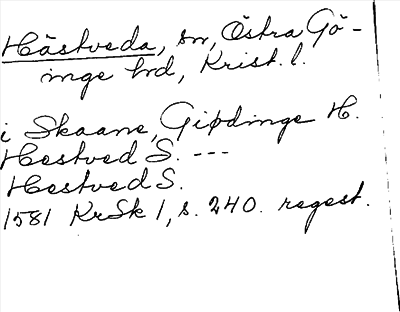 Hästveda, sn, Östra Gö-
inge hd, Krist. l.
i Skaane, Giødinge H.
Hestved S. ---
Hestved S.
1581 KrSk 1, s. 240. regest.